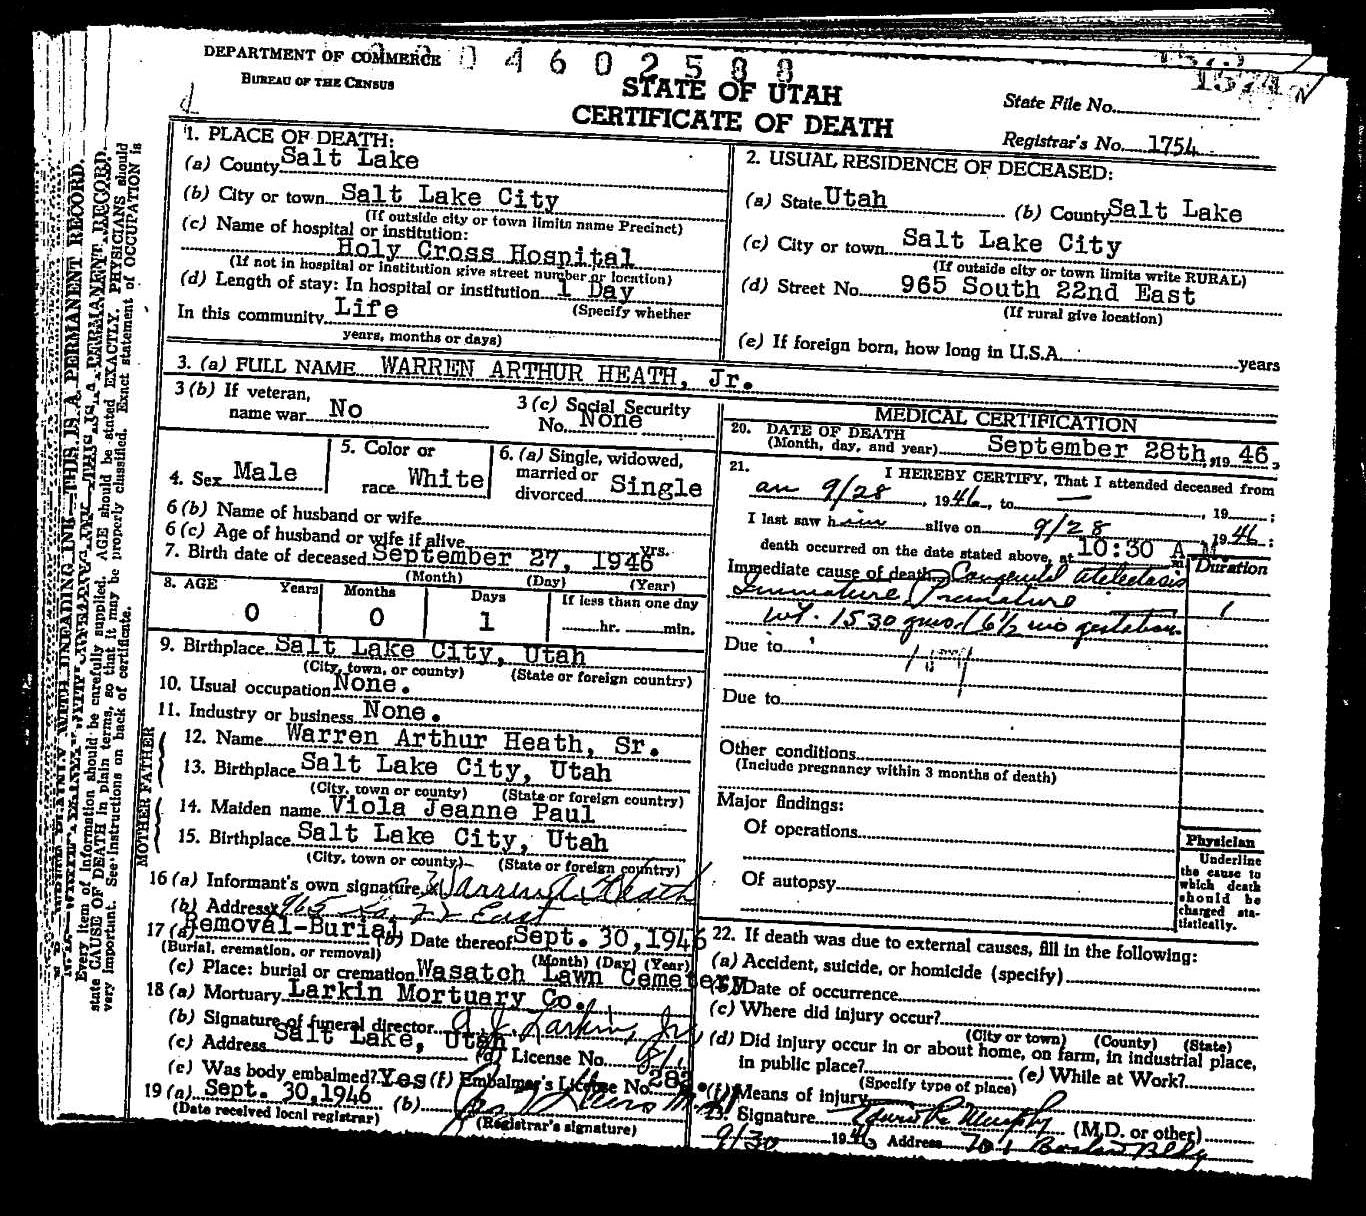 DEPARTMENT OF COMMERCE
BUREAU OF THE CENSUS
0 4 6 0 2 5 8 8
1574
STATE OF UTAH
CERTIFICATE OF DEATH
State File No.
Registrar's No. 1754
1. PLACE OF DEATH:
(a) County Salt Lake
(b) City or town Salt Lake City
(If outside city or town limits name Precinct)
(c) Name of hospital or institution:
Holy Cross Hospital
(If not in hospital or institution give street number or location)
(d) Length of stay: In hospital or institution 1 Day
(Specify whether
In this community Life
years, months or days)
2. USUAL RESIDENCE OF DECEASED:
(a) State Utah (b) County Salt Lake
(c) City or town Salt Lake City
(If outside city or town limits write RURAL)
(d) Street No. 965 South 22nd East
(If rural give location)
(e) If foreign born, how long in U.S.A. years
3. (a) FULL NAME WARREN ARTHUR HEATH, Jr.
3 (b) If veteran,
name war No
3 (c) Social Security
No. None
4. Sex Male
5. Color or
race White
6. (a) Single, widowed,
married or
divorced Single
6 (b) Name of husband or wife
6 (c) Age of husband or wife if alive yrs.
7. Birth date of deceased September 27, 1946
(Month) (Day) (Year)
8. AGE Years Months Days If less than one day
0 0 1 hr. min.
9. Birthplace Salt Lake City, Utah
(City, town, or county) (State or foreign country)
10. Usual occupation None.
11. Industry or business None.
FATHER
12. Name Warren Arthur Heath, Sr.
13. Birthplace Salt Lake City, Utah
(City, town or county) (State or foreign country)
MOTHER
14. Maiden name Viola Jeanne Paul
15. Birthplace Salt Lake City, Utah
(City, town or county) (State or foreign country)
16 (a) Informant's own signature Warren A Heath
(b) Address 965 So. 22 East
17 (a) Removal-Burial (b) Date thereof Sept. 30, 1946
(Burial, cremation, or removal) (Month) (Day) (Year)
(c) Place: burial or cremation Wasatch Lawn Cemetery
18 (a) Mortuary Larkin Mortuary Co.
(b) Signature of funeral director A. J. Larkin, Jr.
(c) Address Salt Lake, Utah (d) License No.
(e) Was body embalmed? Yes (f) Embalmer's License No. 282.
19 (a) Sept. 30, 1946 (b)
(Date received local registrar) (Registrar's signature)
MEDICAL CERTIFICATION
20. DATE OF DEATH
(Month, day, and year) September 28th, 19 46.
21. I HEREBY CERTIFY, That I attended deceased from
on 9/28, 1946, to —, 19 ;
I last saw him alive on 9/28 1946;
death occurred on the date stated above, at 10:30 A M.
Immediate cause of death Congenital Atelectasis
Duration
Immature, Premature 1
wt. 1530 gms. (6 1/2 mo gestation
Due to
Due to
Other conditions
(Include pregnancy within 3 months of death)
Major findings:
Of operations
Of autopsy
Physician
Underline
the cause to
which death
should be
charged sta-
tistically.
22. If death was due to external causes, fill in the following:
(a) Accident, suicide, or homicide (specify)
(b) Date of occurrence
(c) Where did injury occur?
(City or town) (County) (State)
(d) Did injury occur in or about home, on farm, in industrial place,
in public place? (e) While at Work?
(Specify type of place)
(f) Means of injury
23. Signature R. Murphy (M.D. or other)
9/30 1946 Address 701 Boston Bldg
THIS IS A PERMANENT RECORD.
Every item of information should be carefully supplied. AGE should be stated EXACTLY. PHYSICIANS should
state CAUSE OF DEATH in plain terms, so that it may be properly classified. Exact statement of OCCUPATION is
very important. See instructions on back of certificate.